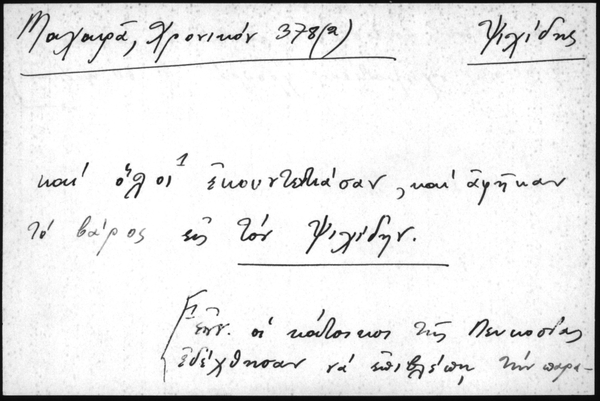 Μαχαιρᾶ, Χρονικόν 378(α) Ψιλίδης
καὶ ὅλοι¹ ἐκουντεντιάσαν, καὶ ἀφῆκαν
τὸ βάρος εἰς τὸν Ψιλίδην.
[¹ ἐνν. οἱ κάτοικοι τῆς Λευκοσίας
ἐδέχθησαν νὰ ἐπιβλέπῃ τὴν παρα-